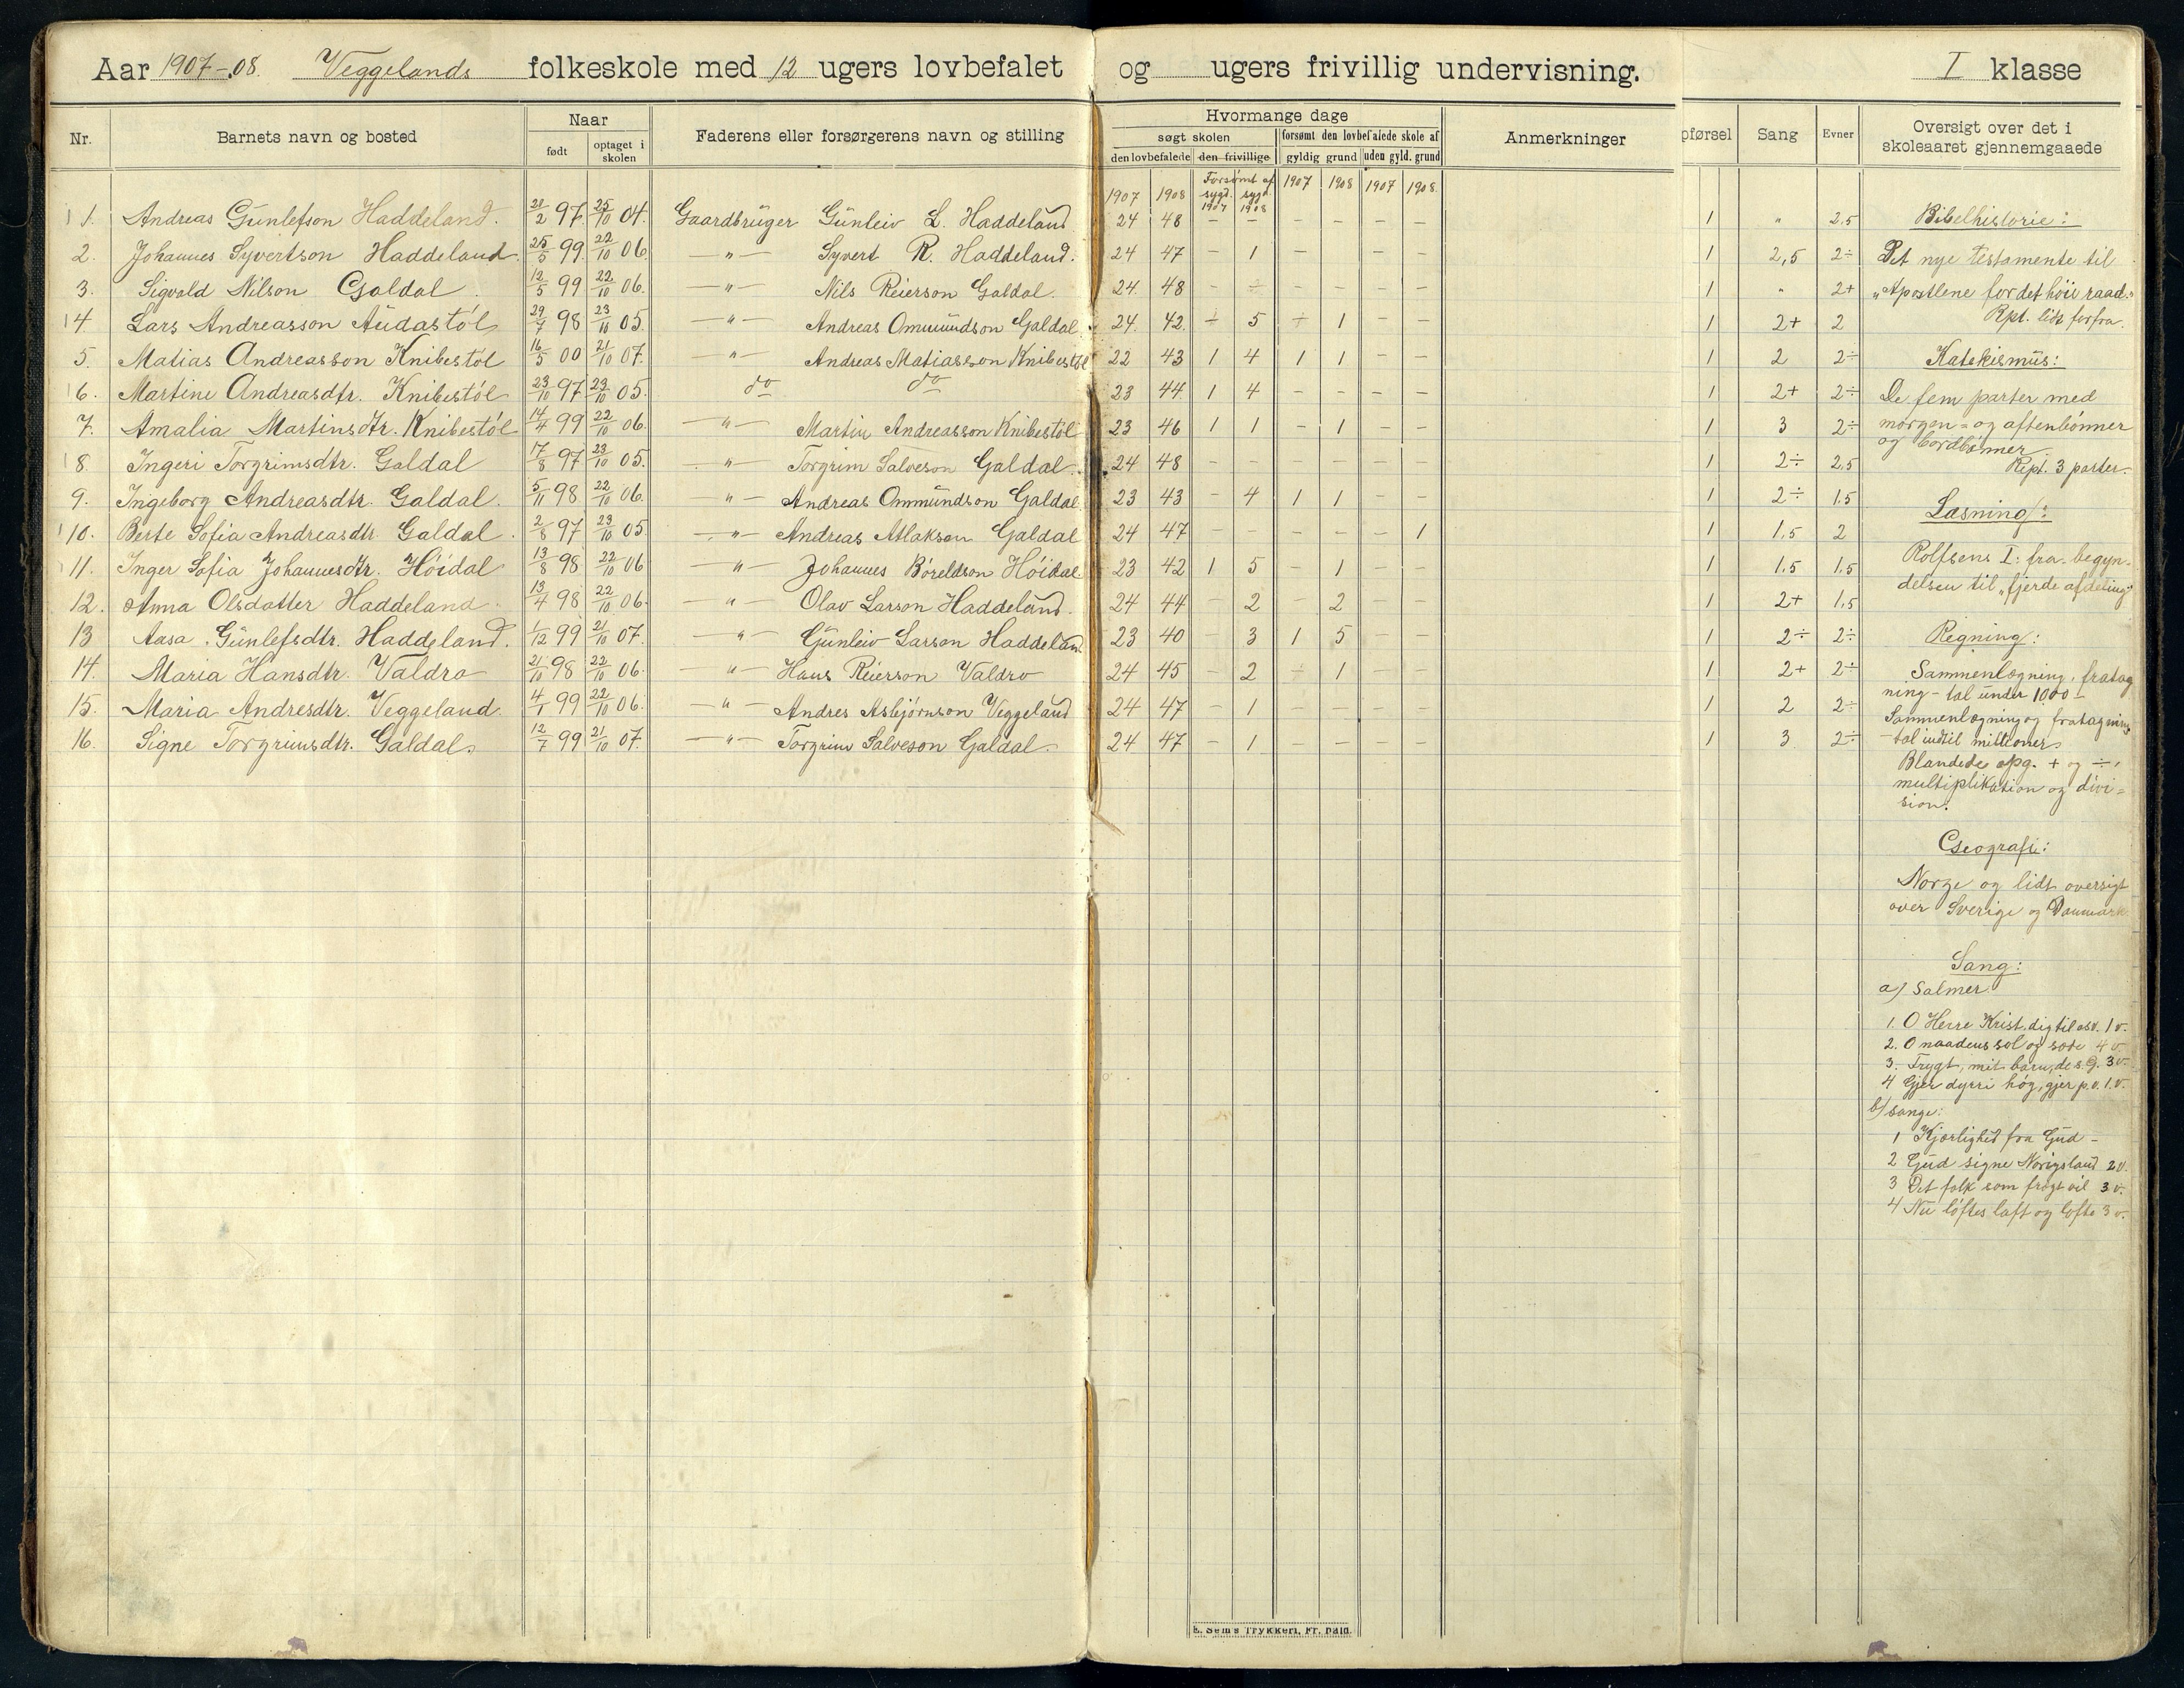 Aar 1907-08. Veggelands folkeskole med 12 ugers lovbefalet og ugers frivillig undervisning. I klasse
Nr. Barnets navn og bosted Naar født optaget i skolen Faderens eller forsørgerens navn og stilling Hvormange dage søgt skolen den lovbefalede den frivillige forsømt den lovbefalede skole af gyldig grund uden gyld. grund Anmerkninger pførsel Sang Evner Oversigt over det i skoleaaret gjennemgaaede
1907 1908 Forsømt af sygd. 1907 sygd. 1908 1907 1908 1907 1908
1. Andreas Gunlefson Haddeland. 28/2 97. 25/10 04. Gaardbruger Gunleiv L. Haddeland 24 48 - - - - - - 1 " 2,5
2. Johannes Syvertson Haddeland. 25/5 99. 22/10 06. -"- Syvert R. Haddeland. 24 47 - 1 - - - - 1 2,5 2÷
3. Sigvald Nilson Galdal 12/5 99 22/10 06. -"- Nils Reierson Galdal. 24. 48 - - - - - - 1 " 2+
4. Lars Andreasson Audastøl 29/7 98 23/10 05. -"- Andreas Ommundson Galdal. 24. 42. - 5 - 1 - - 1 2+ 2
5. Matias Andreasson Knibestøl 16/5 00 21/10 07. -"- Andreas Matiasson Knibestøl 22 43 1 4 1 1 - - 1 2 2÷
6. Martine Andreasdtr. Knibestøl 23/10 97 23/10 05. do do 23 44 1 4 - - - - 1 2+ 2÷
7. Amalia Martinsdtr. Knibestøl 14/4 99 22/10 06. -"- Martin Andreasson Knibestøl 23 46 1 1 - 1 - - 1 3 2÷
8. Ingeri Torgrimsdtr. Galdal 17/8 97 23/10 05. -"- Torgrim Salveson Galdal. 24 48 - - - - - - 1 2÷ 2,5
9. Ingeborg Andreasdtr. Galdal. 5/11 98 22/10 06. -"- Andreas Ommundson Galdal. 23 43 - 4 1 1 - - 1 2÷ 1,5
10. Berte Sofia Andreasdtr. Galdal. 2/8 97 23/10 05 -"- Andreas Atlakson Galdal 24 47 - - - - - 1 1 1,5 2
11. Inger Sofia Johannesdtr. Høidal 13/8 98 22/10 06 -"- Johannes Børeldson Høidal. 23 42 1 5 - 1 - - 1 1,5 1,5
12. Anna Olsdatter Haddeland. 13/4 98 22/10 06. -"- Olav Larson Haddeland. 24 44 - 2 - 2 - - 1 2+ 1,5
13 Aasa Gunlefsdtr. Haddeland. 1/12 99 21/10 07. -"- Gunleiv Larson Haddeland 23 40 - 3 1 5 - - 1 2÷ 2÷
14. Maria Hansdtr. Valdro 21/10 98 22/10 06. -"- Hans Reierson Valdro 24 45 - 2 - 1 - - 1 2+ 2÷
15. Maria Andresdtr. Veggeland. 4/1 99 22/10 06. -"- Andres Asbjørnson Veggeland 24 47 - 1 - - - - 1 2 2÷
16. Signe Torgrimsdtr. Galdal. 12/7 99 21/10 07. -"- Torgrim Salveson Galdal. 24 47 - 1 - - - - 1 3 2÷
Bibelhistorie:
Det nye testamente til
"Apostlene for det høie raad."
Rpt. lidt forfra.
Katekismus:
De fem parter med
morgen- og aftenbønner
og bordbønner
Rept. 3 parter.
Læsning:
Rolfsens I: fra begyn-
delsen til "fjerde afdeling"
Regning:
Sammenlægning, fratag
ning - tal under 1000 -
Sammenlægning og fratagning
- tal indtil millioner.
Blandede opg. + og ÷,
multiplikation og divi-
sion.
Geografi:
Norge og lidt oversigt
over Sverige og Danmark
Sang:
a) Salmer.
1. O Herre Krist, dig til osv. 1 v.
2. O naadens sol og sæde 4 v.
3. Trygt, mit barn, de s. G. 3 v.
4 Gjer dyrri høg, gjer p. v. 1. v.
b) sange:
1 Kjærlighed fra Gud -
2 Gud signe Norigsland 2 v.
3 Det folk som frægt vil 3 v.
4 Nu løftes laft og lofte 3 v.
E. Sem's Trykkeri, Fr.hald.